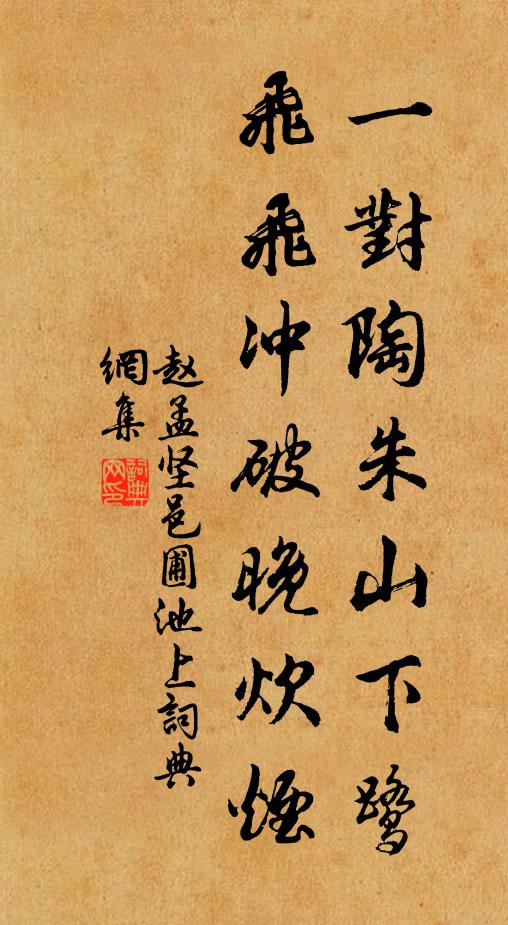 一對陶朱山下鹭
飛飛冲破晚炊煙
赵孟坚邑圃池上詞典
網集
詞典网印